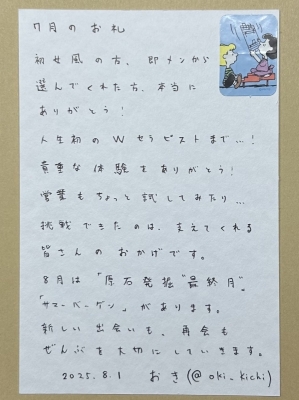 7月のお礼
初女風の方、即メンから
選んでくれた方、本当に
ありがとう!
人生初のWセラピストまで…!
貴重な体験をありがとう!
営業もちょっと試してみたり…
挑戦できたのは、支えてくれる
皆さんのおかげです。
8月は「原石発掘"最終月"」
「サマーバーゲン」があります。
新しい出会いも、再会も
ぜんぶを大切にしていきます。
2025.8.1 おき(@oki_kichi)